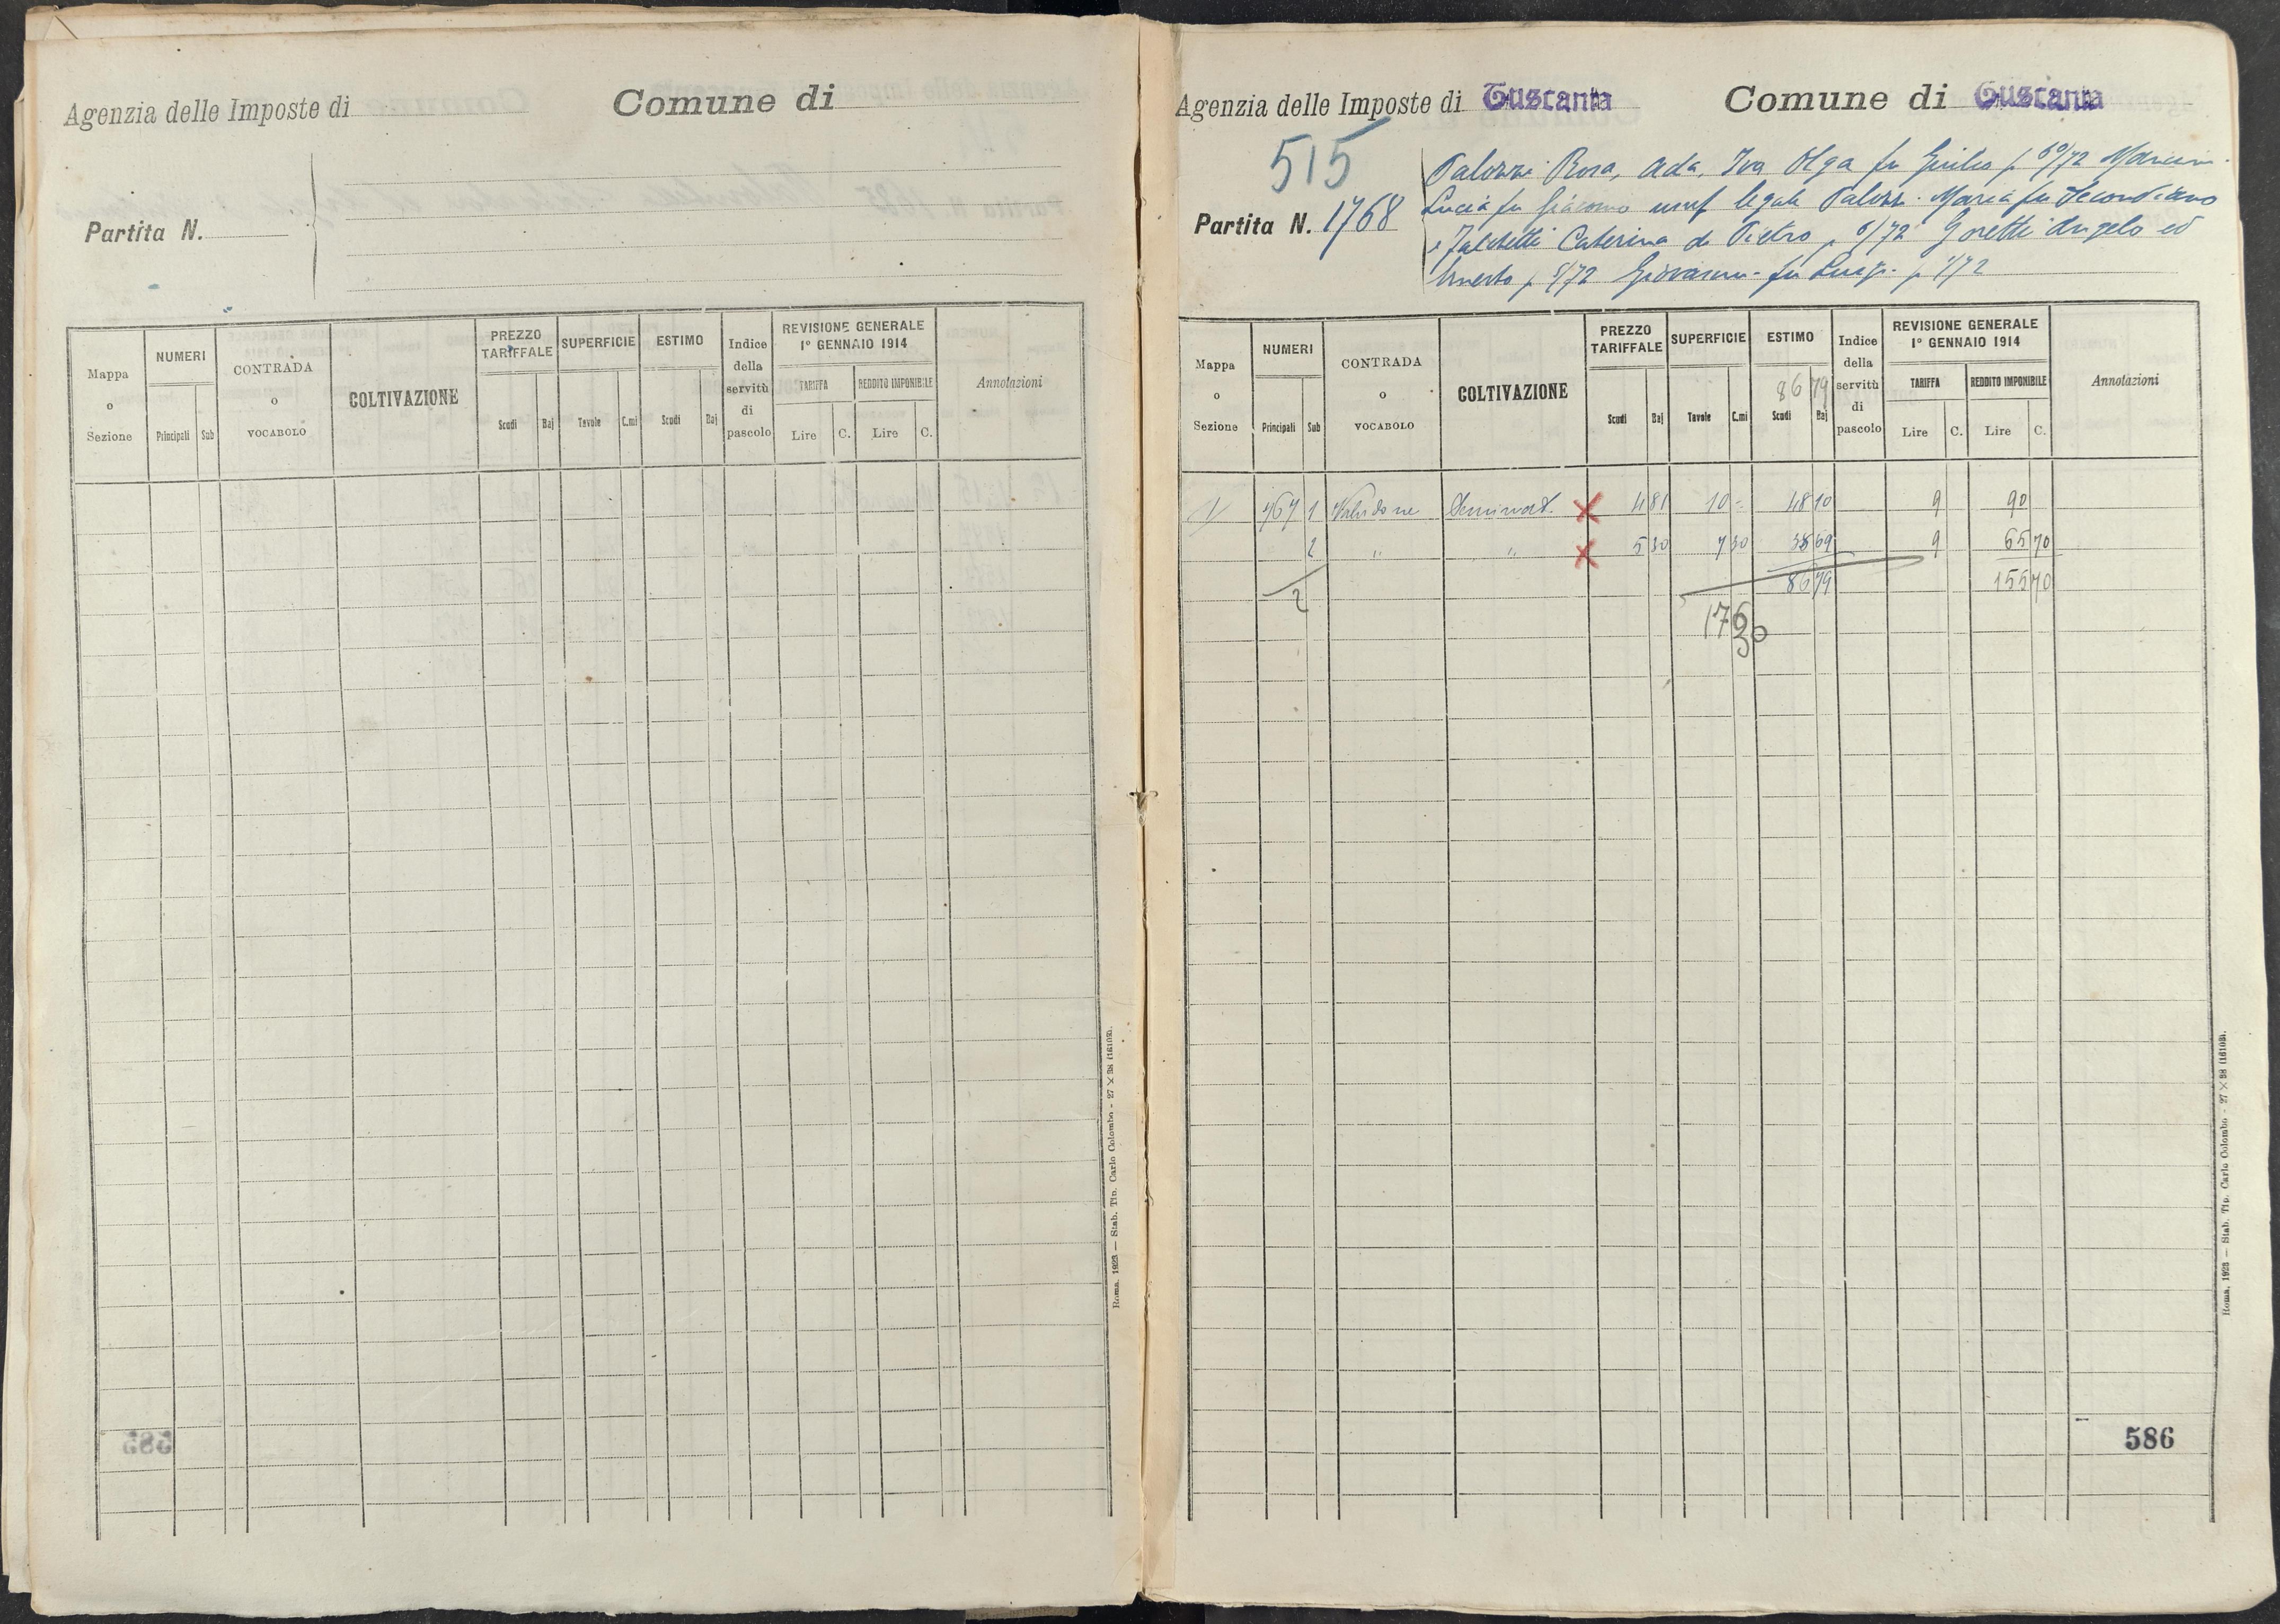 Agenzia delle Imposte di
Comune di
Partita N.
Mappa o Sezione
NUMERI
Principali Sub
CONTRADA o VOCABOLO
COLTIVAZIONE
PREZZO TARIFFALE
Scudi Baj
SUPERFICIE
Tavole C.mi
ESTIMO
Scudi Baj
Indice della servitù di pascolo
REVISIONE GENERALE
1° GENNAIO 1914
TARIFFA
Lire C.
REDDITO IMPONIBILE
Lire C.
Annotazioni
585
Roma, 1923 — Stab. Tip. Carlo Colombo - 27 × 38 (16108).
Agenzia delle Imposte di Tuscania
Comune di Tuscania
515
Partita N. 1768
Palozzi Rosa, Ada, Iva Olga fu Giulio p. 60/72 Mancini
Lucia fu Giacomo usuf legale Palozzi Maria fu Secondiano
e Falchetti Caterina di Pietro p. 6/72 Goretti Angelo ed
Ernesto p. 5/72 Giovanni fu Luigi p. 1/72
Mappa o Sezione
NUMERI
Principali Sub
CONTRADA o VOCABOLO
COLTIVAZIONE
PREZZO TARIFFALE
Scudi Baj
SUPERFICIE
Tavole C.mi
ESTIMO
86 79
Scudi Baj
Indice della servitù di pascolo
REVISIONE GENERALE
1° GENNAIO 1914
TARIFFA
Lire C.
REDDITO IMPONIBILE
Lire C.
Annotazioni
467 1 Seminat. 4 81 10 - 48 10 9 90
2 " " 5 30 7 30 38 69 9 65 70
2 86 79 155 70
17 30
586
Roma, 1923 — Stab. Tip. Carlo Colombo - 27 × 38 (16108).